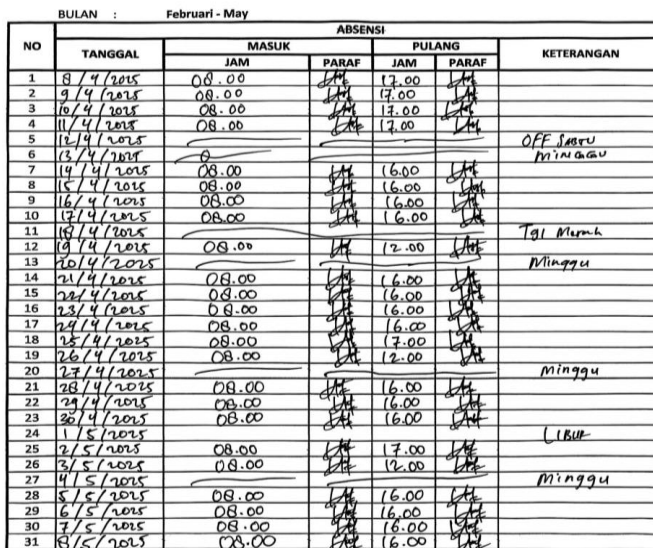 BULAN : Februari - May
ABSENSI
NO TANGGAL MASUK PULANG KETERANGAN
JAM PARAF JAM PARAF
1 8/4/2025 08.00 17.00
2 9/4/2025 08.00 17.00
3 10/4/2025 08.00 17.00
4 11/4/2025 08.00 17.00
5 12/4/2025 OFF SABTU
6 13/4/2025 MINGGU
7 14/4/2025 08.00 16.00
8 15/4/2025 08.00 16.00
9 16/4/2025 08.00 16.00
10 17/4/2025 08.00 16.00
11 18/4/2025 Tgl Merah
12 19/4/2025 08.00 12.00
13 20/4/2025 Minggu
14 21/4/2025 08.00 16.00
15 22/4/2025 08.00 16.00
16 23/4/2025 08.00 16.00
17 24/4/2025 08.00 16.00
18 25/4/2025 08.00 17.00
19 26/4/2025 08.00 12.00
20 27/4/2025 Minggu
21 28/4/2025 08.00 16.00
22 29/4/2025 08.00 16.00
23 30/4/2025 08.00 16.00
24 1/5/2025 LIBUR
25 2/5/2025 08.00 17.00
26 3/5/2025 08.00 12.00
27 4/5/2025 Minggu
28 5/5/2025 08.00 16.00
29 6/5/2025 08.00 16.00
30 7/5/2025 08.00 16.00
31 8/5/2025 08.00 16.00